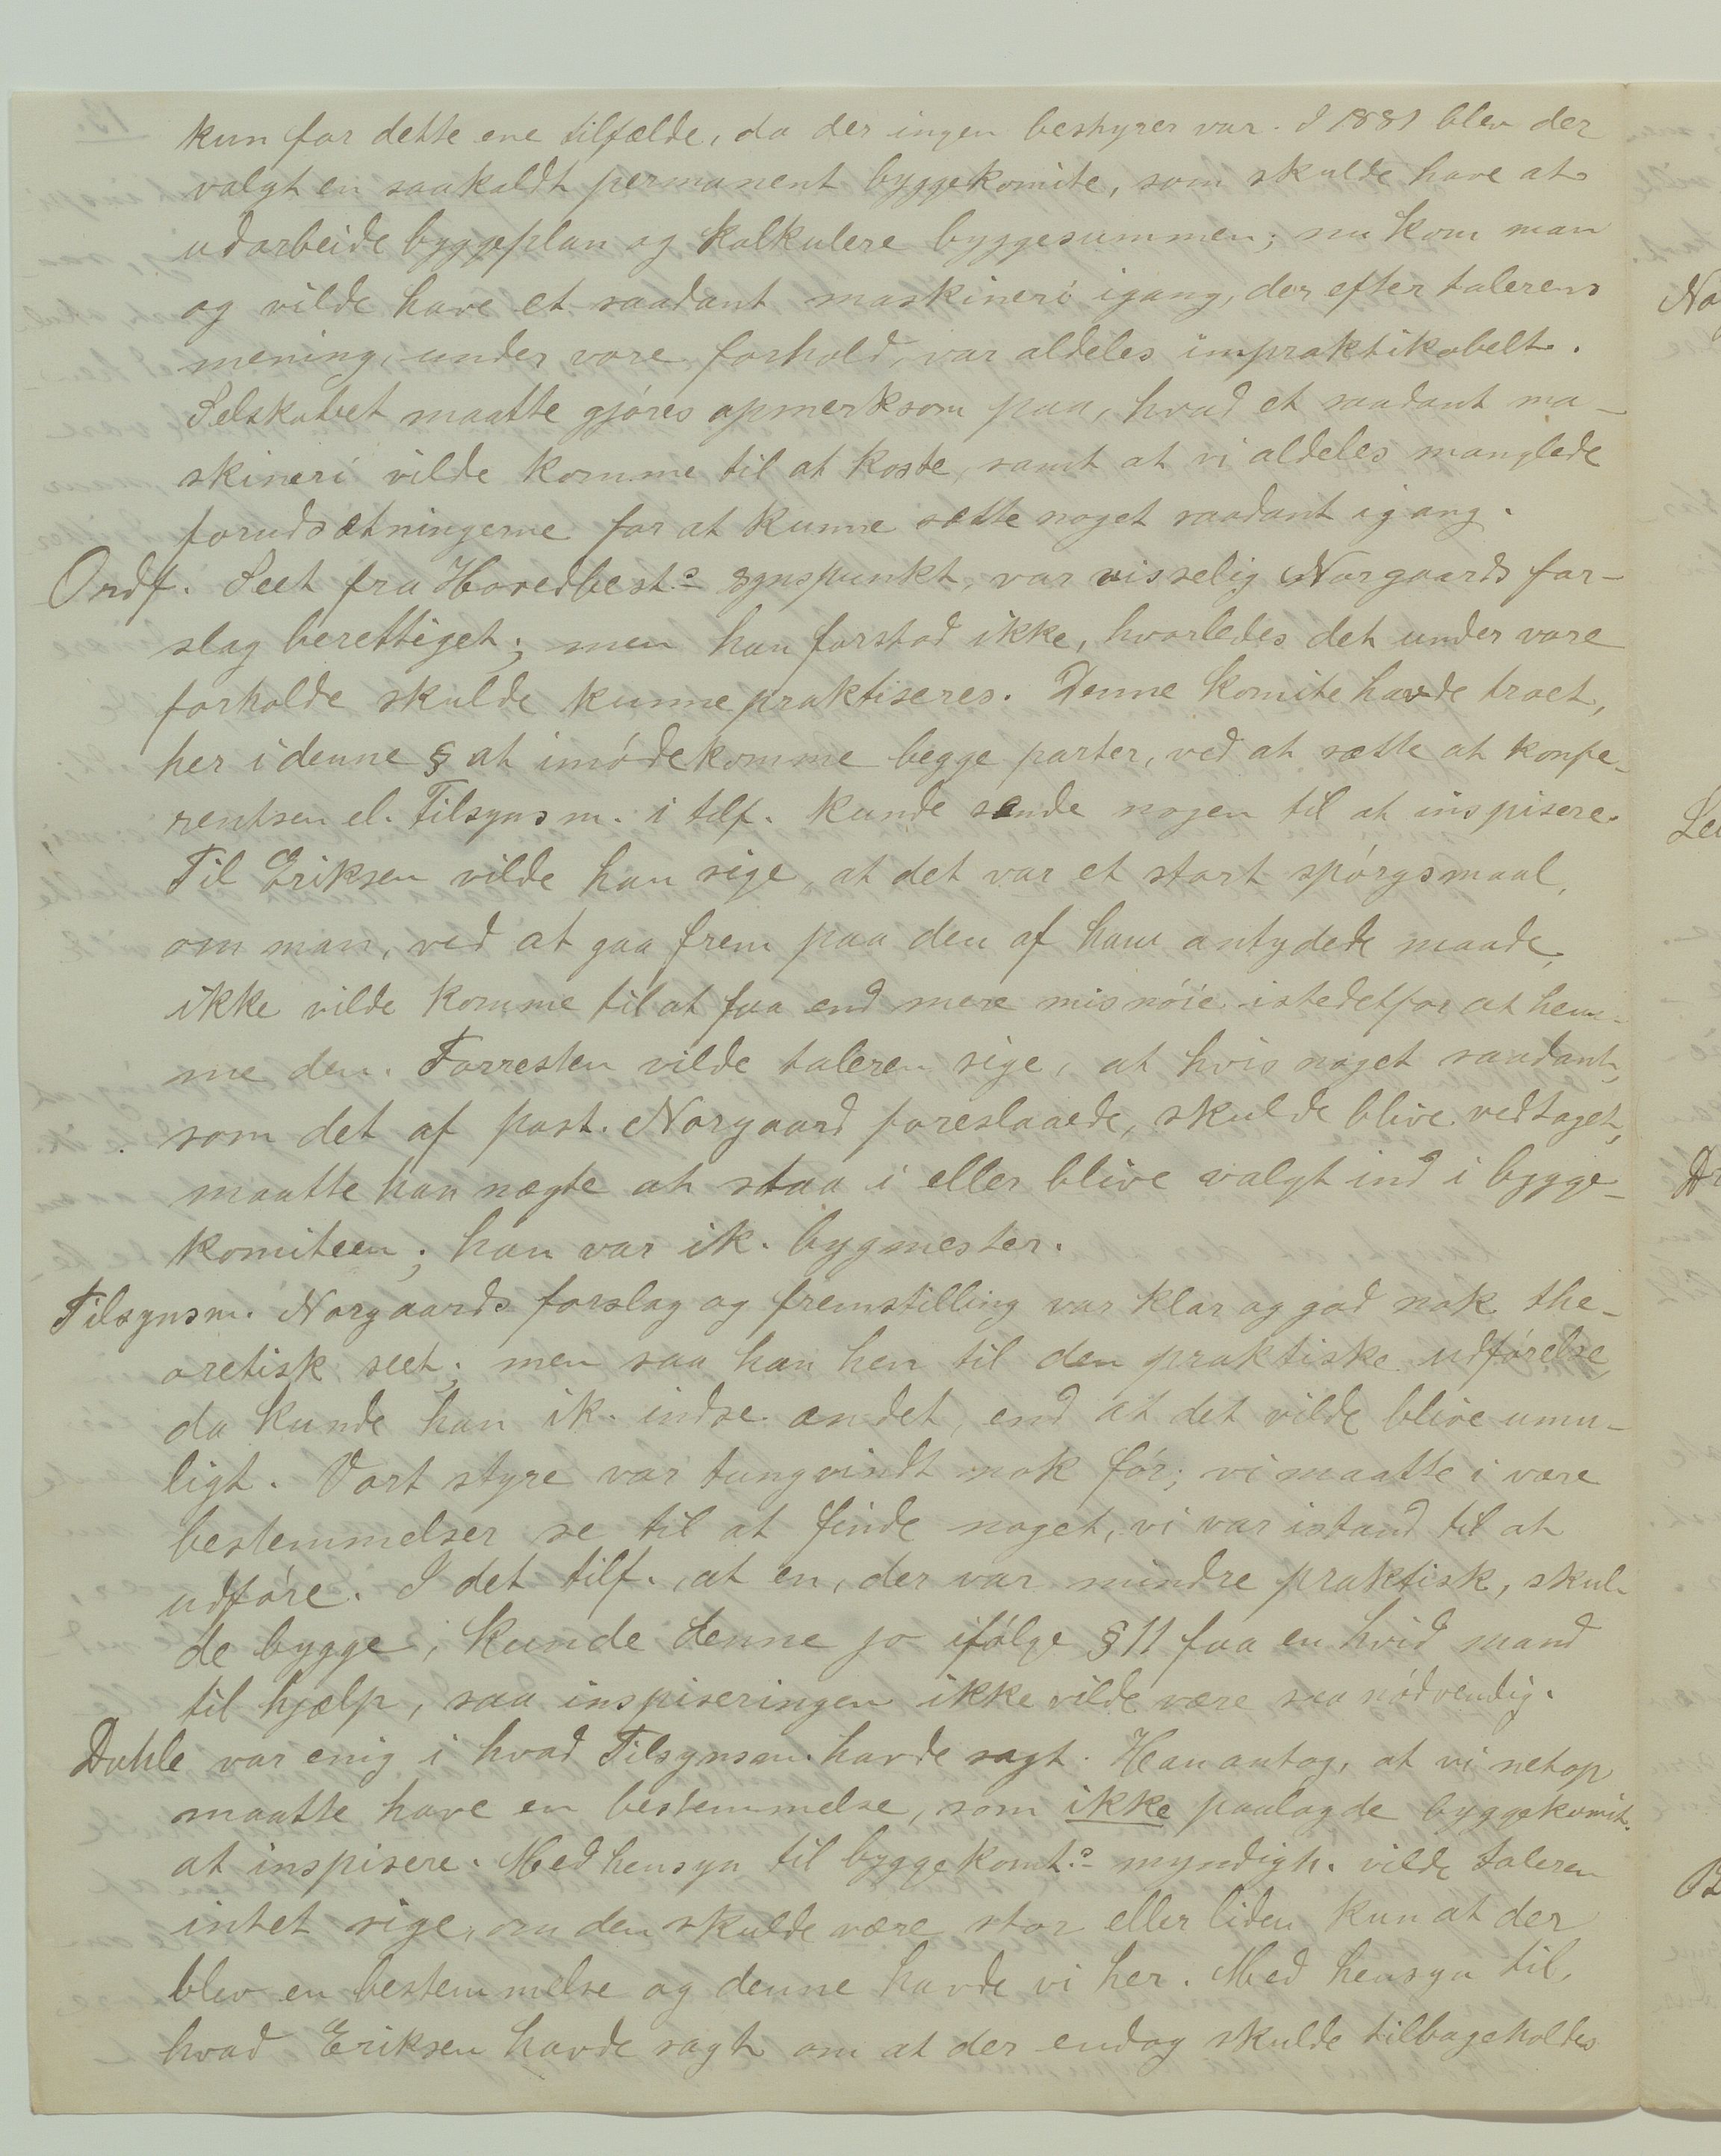 kun for dette ene tilfælde, da der ingen bestyrer var. I 1881 blev der
valgt en saakaldt permanent byggekomite, som skulde have at
udarbeide byggeplan og kalkulere byggesummen; nu kom man
og vilde have et saadant maskineri igang, der efter talerens
mening, under vore forhold, var aldeles impraktikabelt.
Selskabet maatte gjöres opmerksom paa, hvad et saadant ma-
skineri vilde komme til at koste, samt at vi aldeles manglede
forudsætningerne for at kunne sætte noget saadant igang.
Ordf. Seet fra Hovedbest.s synspunkt, var visselig Norgaards for-
slag berettiget; men han forstod ikke, hvorledes det under vore
forholde skulde kunne praktiseres. Denne komite havde troet,
her i denne § at imödekomme begge parter, ved at sætte at konfe-
rentsen el. Tilsynsm. i tilf. kunde sende nogen til at inspisere.
Til Eriksen vilde han sige, at det var et stort spörgsmaal,
om man, ved at gaa frem paa den af ham antydede maade,
ikke vilde komme til at faa end mere misnöie istedetfor at hem-
me den. Forresten vilde taleren sige, at hvis noget saadant,
som det af past. Norgaard foreslaaede, skulde blive vedtaget,
maatte han nægte at staa i eller blive valgt ind i bygge-
komiteen; han var ik. bygmester.
Tilsynsm. Norgaards forslag og fremstilling var klar og god nok the-
oretisk seet; men saa han hen til den praktiske udförelse,
da kunde han ik. indse andet, end at det vilde blive umu-
ligt. Vort styre var tungvindt nok för; vi maatte i vore
bestemmelser se til at finde noget, vi var istand til at
udföre. I det tilf. at en, der var mindre praktisk, skul-
de bygge, kunde denne jo ifölge § 11 faa en hvid mand
til hjælp, saa inspiseringen ikke vilde være saa nödvendig.
Dahle var enig i hvad Tilsynsm. havde sagt. Han antog, at vi netop
maatte have en bestemmelse, som ikke paalagde byggekomit.
at inspisere. Med hensyn til byggekomt.s myndigh. vilde taleren
intet sige, om den skulde være stor eller liden kun at der
blev en bestemmelse og denne havde vi her. Med hensyn til,
hvad Eriksen havde sagt om at der endog skulde tilbageholdes